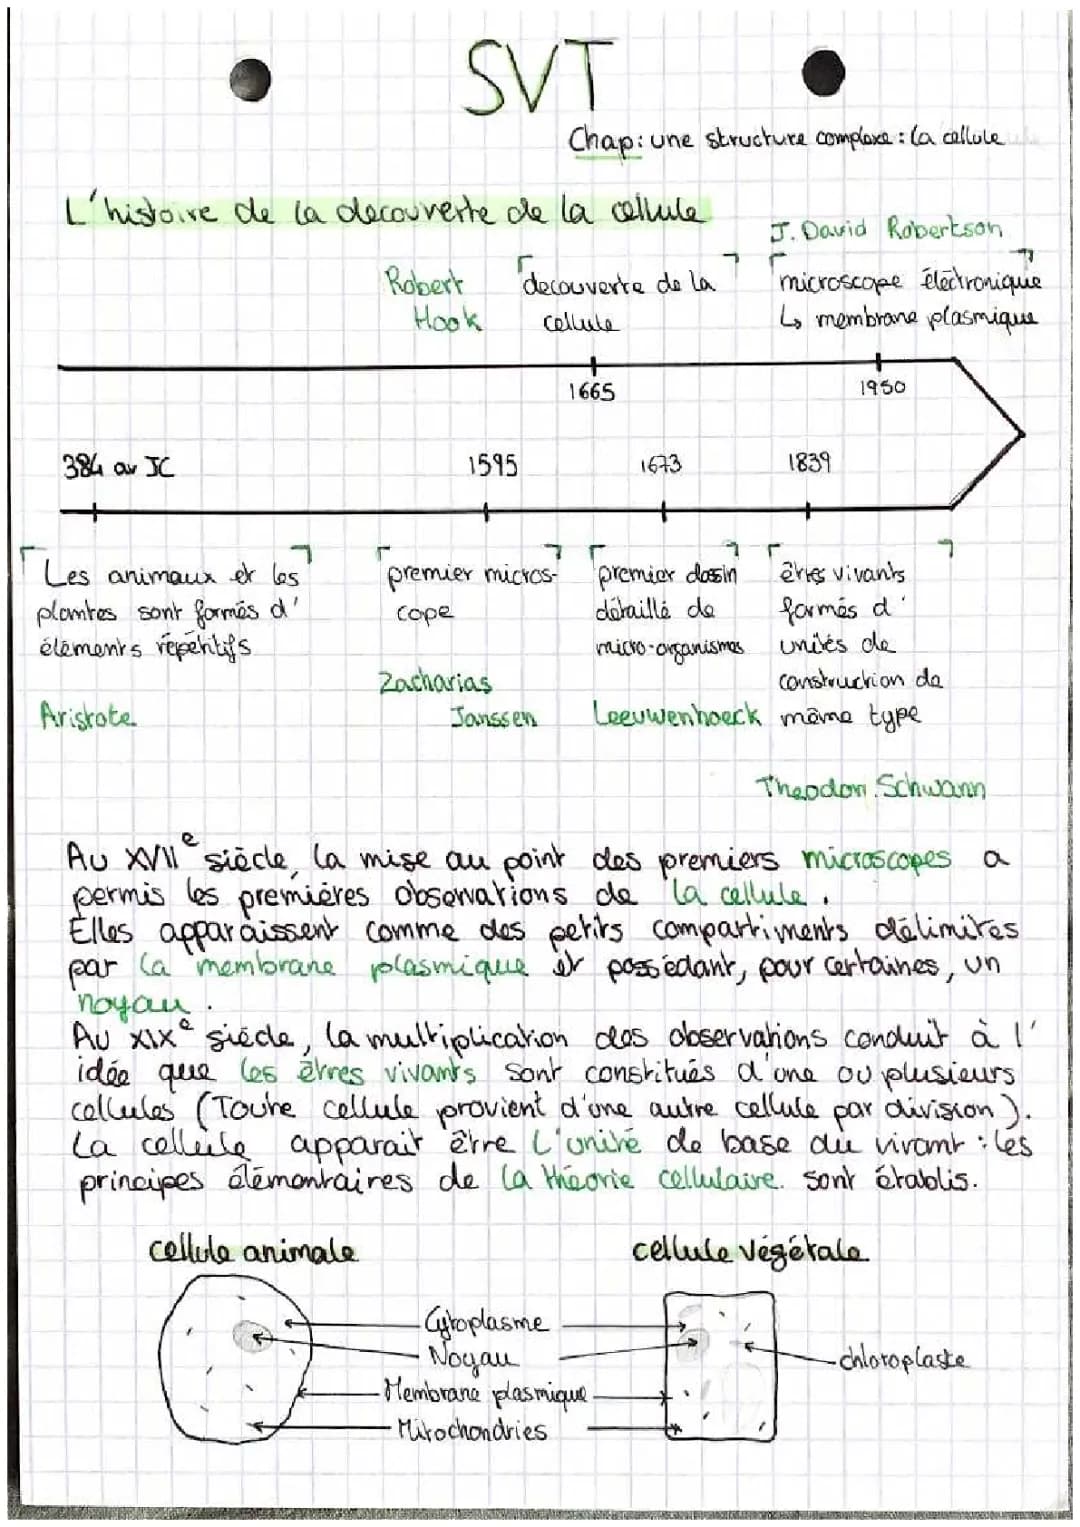 SVT
Chap: une structure complexe : la cellule
L'histoire de la decouverte de la cellule
J. David Robertson
Robert
Hook
decouverte de la
cellule
microscope électronique
↳ membrane plasmique
1665
1950
384 av JC
1595
1673
1839
Les animaux et les
plantes sont formés d'
éléments répétitifs
Aristote
premier micros-
cope
Zacharias
Janssen
premier dessin
détaillé de
micro-organismes
Leeuwenhoeck
êtres vivants
formés d'
unités de
construction de
même type
Theodor Schwann
Au XVIIe siècle, la mise au point des premiers microscopes a
permis les premières observations de la cellule.
Elles apparaissent comme des petits compartiments délimités
par la membrane plasmique et possédant, pour certaines, un
noyau.
Au XIXe siècle, la multiplication des observations conduit à l'
idée que les êtres vivants sont constitués d'une ou plusieurs
cellules (Toute cellule provient d'une autre cellule par division).
La cellule apparait être l'unité de base du vivant : les
principes élémentaires de la théorie cellulaire. sont établis.
cellule animale
cellule végétale
Cytoplasme
Noyau
Membrane plasmique
Mitochondries
chloroplaste